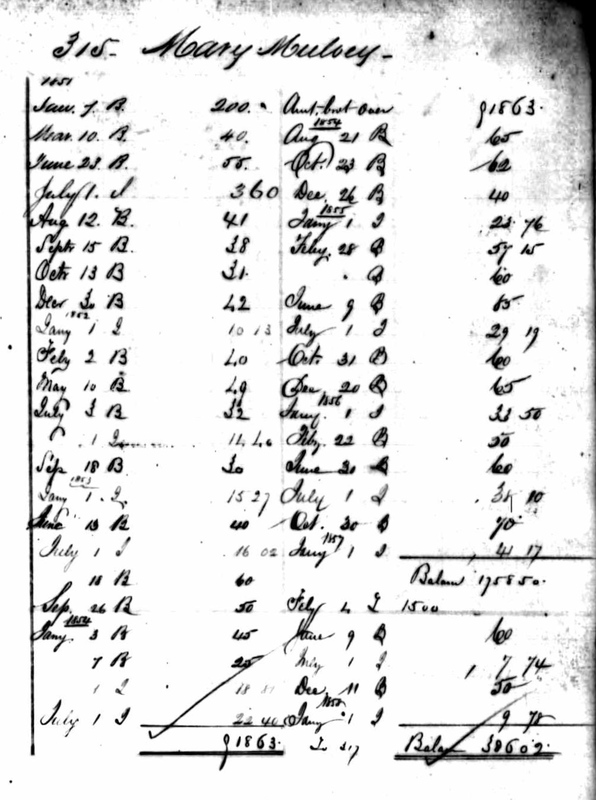 315- Mary Mulvey-
1851
Jan. 7. B. 200.
Mar. 10. B. 40.
June 23. B. 55.
July 1. I 3 60
Aug 12. B. 41
Septr 15 B. 38
Octr 13 B 31.
Decr 30 B 42
1852
Jany 1 I 10 13
Feby 2 B 40
May 10 B 49
July 3 B 32
1 I 11 46
Sep 18 B 30
1853
Jany 1. I. 15 27
June 13 B 40
July 1 I 16 02
18 B 60
Sep. 26 B 50
1854
Jany. 3 B 45
7 B 25
1 I 18
July 1 I 22 40
$1863.
Amt. brot over $1863.
1854
Aug 21 B 65
Oct. 23 B 62
Dec. 26 B 40
1855
Jany 1 I 23 76
Feby. 28 B 57 15
. B 60
June 9 B 85
July 1 I 29 19
Octr 31 B 60
Dec. 20 B 65
1856
Jany. 1 I 33 50
Feby. 22 B 50
June 30 B 60
July 1 I 38 10
Oct. 30 B 70
1857
Jany 1 I 41 17
Balan 1758 50.
Feby 4 I 1500
June 9 B 60
July 1 I 7 74
Dec 11 B 50
1858
Jany 1 I 9 78
I 317 Balan 386 02.